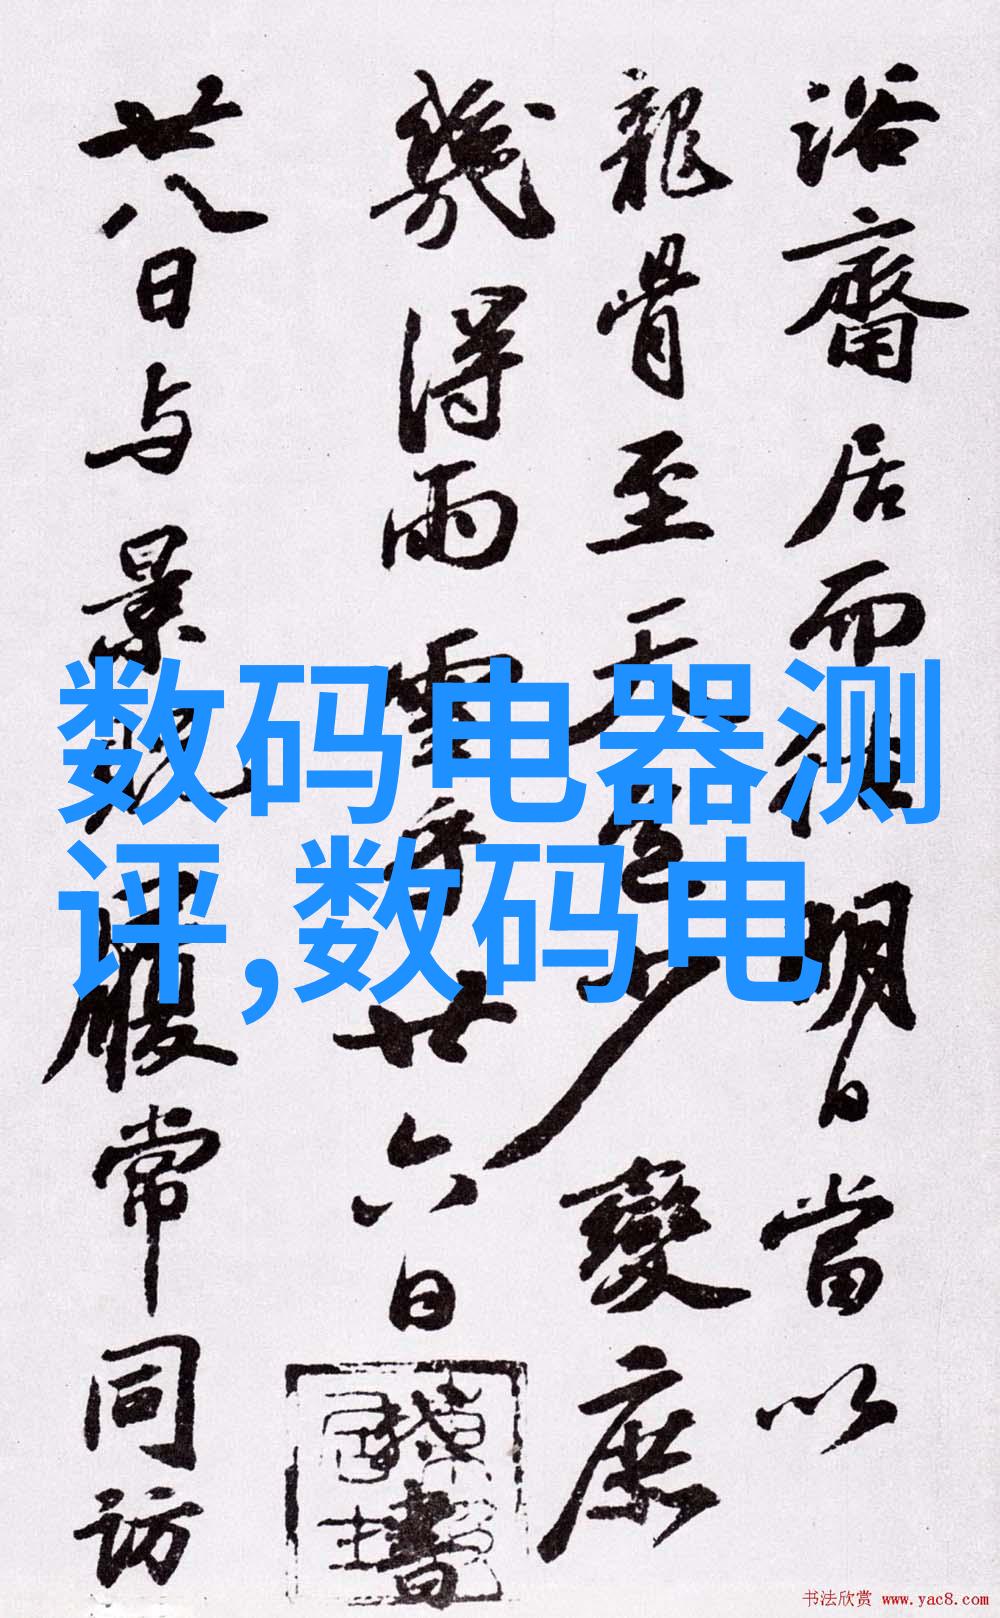 浴斋居而
明日當以
龍骨至天
少變庶
幾得雨
廿六日
書
廿八日与景
履常同访
数码电器测
评,数码电
书法欣赏 www.yac8.com